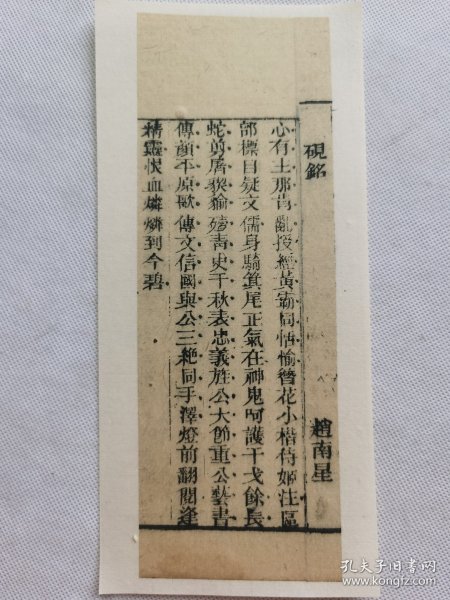 硯銘
趙南星
心有土那肯亂授經黃霸同悟愉簪花小楷侍姬注區
部標目疑文儒身騎箕尾正氣在神鬼呵護干戈餘長
蛇剪屠猰貐殘青史千秋表忠義旌公大節重公藝書
傳顏平原歐傳文信國與公三絕同手澤燈前翻閱逢
精靈恨血燐燐到今碧
孔夫子旧书网
www.kongfz.com